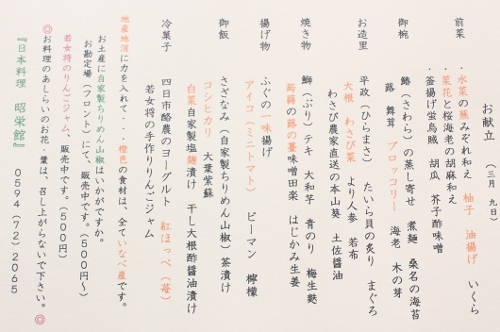 お献立 (三月 九日)
前菜
・水菜の蕪みぞれ和え 柚子 油揚げ いくら
・菜花と桜海老の胡麻和え
・釜揚げ蛍烏賊 胡瓜 芥子酢味噌
御椀
鰆(さわら)の蒸し寄せ 煮麺 桑名の海苔
蕗 舞茸 ブロッコリー 海老 木の芽
お造里
平政(ひらまさ) たいら貝の炙り まぐろ
大根 わさび菜 より人参 若布
わさび農家直送の本山葵 土佐醤油
焼き物
鰤(ぶり)テキ 大和芋 青のり 梅生麩
蒟蒻の蕗の薹味噌田楽 はじかみ生姜
揚げ物
ふぐの一味揚げ
アイコ(ミニトマト) ピーマン 檸檬
御飯
さざなみ(自家製ちりめん山椒)茶漬け
コシヒカリ 大葉紫蘇
白菜自家製塩麹漬け 干し大根酢醤油漬け
冷菓子
四日市酪農のヨーグルト 紅ほっぺ(苺)
若女将の手作りりんごジャム
地産地消に力を入れて・・・橙色の食材は、全ていなべ産です。
お土産に自家製ちりめん山椒はいかがですか。
お勘定場(フロント)にて、販売中です。(500円〜)
若女将のりんごジャム、販売中です。(500円)
◎お料理のあしらいのお花・葉は、召し上がらないで下さい。◎
『日本料理 昭栄館』 0594(72)2065